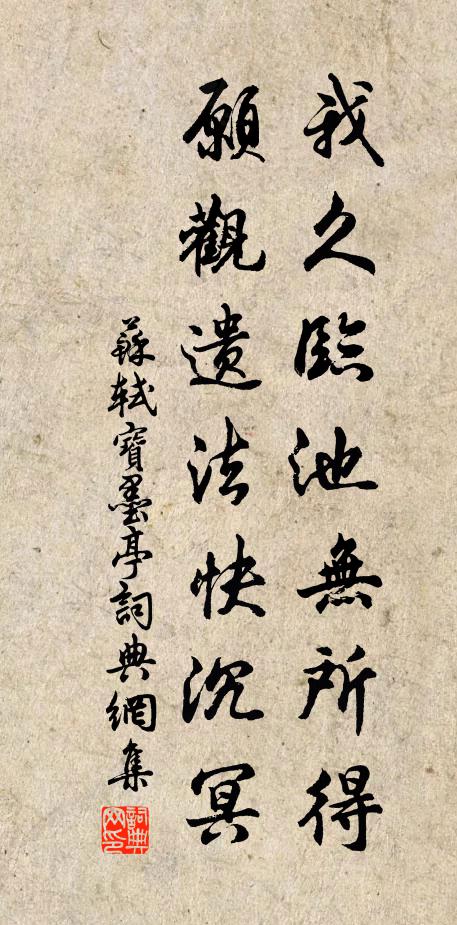 我久臨池無所得
願觀遺法快沉冥
蘇軾寶墨亭詞典網集
詞典网印